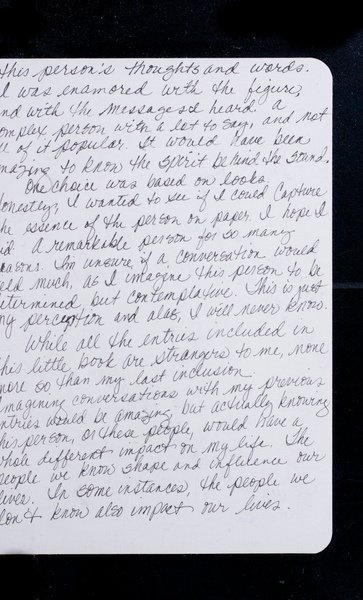 this person's thoughts and words.
I was enamored with the figure,
nd with the messages I heard. a
omplex person with a lot to say, and not
ll of it popular. It would have been
mazing to know the spirit behind the sound.
One choice was based on looks.
onestly, I wanted to see if I could capture
he essence of the person on paper. I hope I
id. A remarkable person for so many
easons. I'm unsure if a conversation would
eld much, as I imagine this person to be
etermined but contemplative. This is just
my perception and alas, I will never know.
While all the entries included in
his little book are strangers to me, none
more so than my last inclusion.
magining conversations with my previous
ntries would be amazing, but actually knowing
his person, or these people, would have a
whole different impact on my life. The
people we know shape and influence our
lives. In some instances, the people we
don't know also impact our lives.